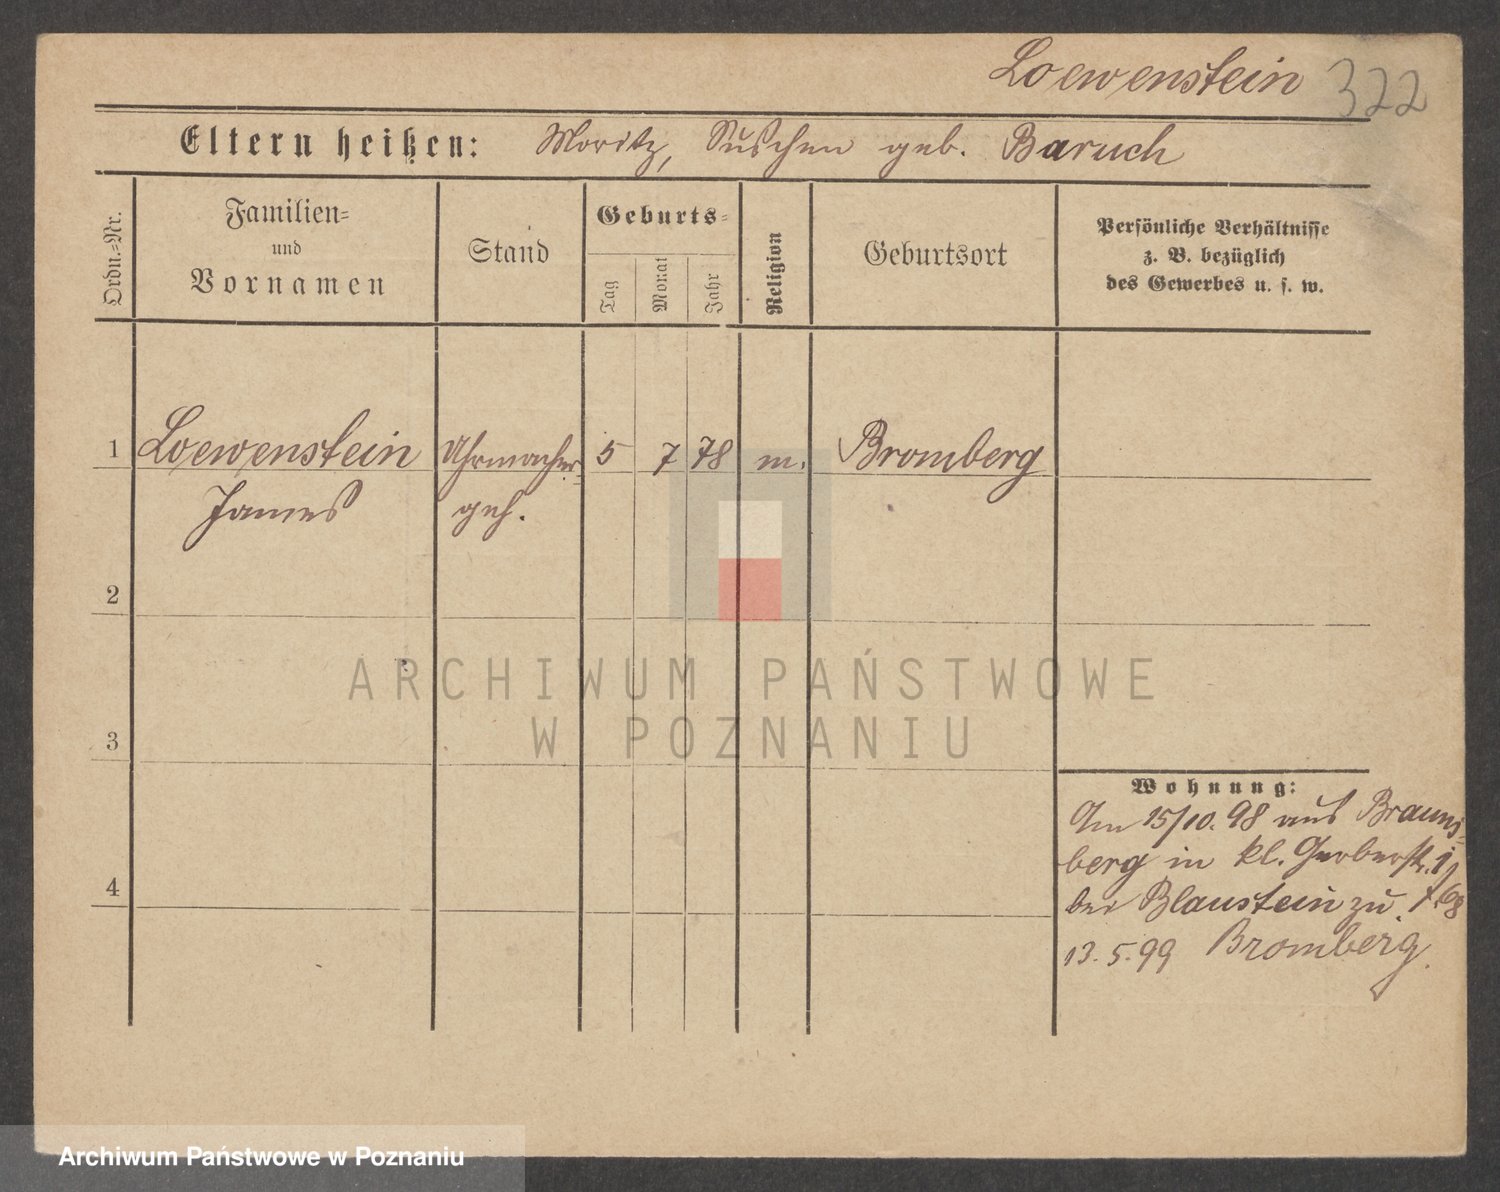 Loewenstein 322
Eltern heißen: Moritz, Suschen geb. Baruch
Ordn.-Nr.
Familien-
und
Vornamen
Stand
Geburts-
Tag
Monat
Jahr
Religion
Geburtsort
Persönliche Verhältnisse
z. B. bezüglich
des Gewerbes u. s. w.
1 Loewenstein Uhrmacher- 5 7 78 m. Bromberg
James geh.
2
3
4
Wohnung:
Am 15/10. 98 aus Brauns-
berg in kl. Gerberstr.
bei Blaustein zu.
13. 5. 99 Bromberg.
ARCHIWUM PAŃSTWOWE
W POZNANIU
Archiwum Państwowe w Poznaniu